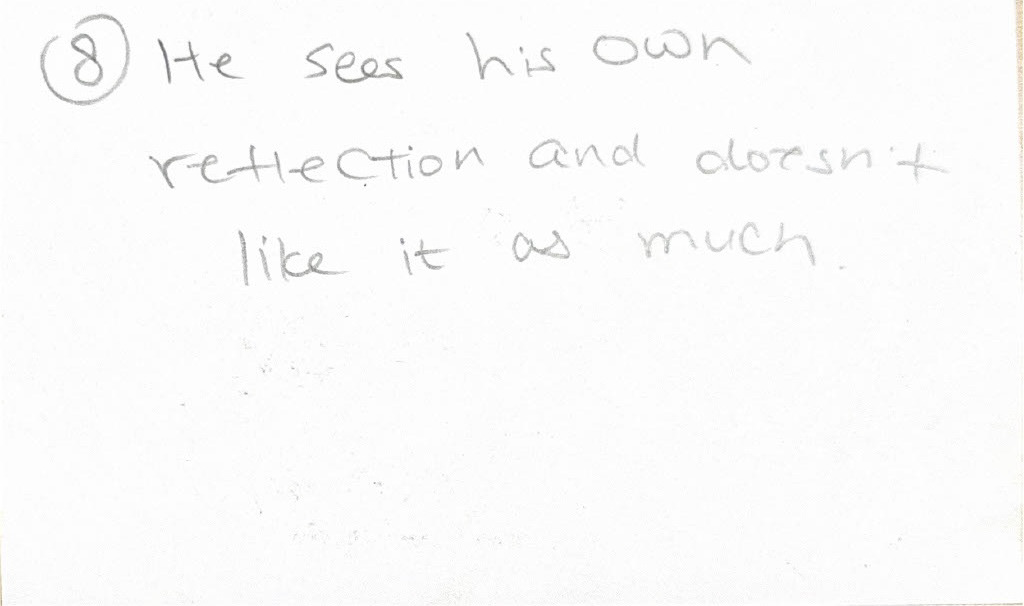 ⑧ He sees his own
reflection and doesn't
like it as much.